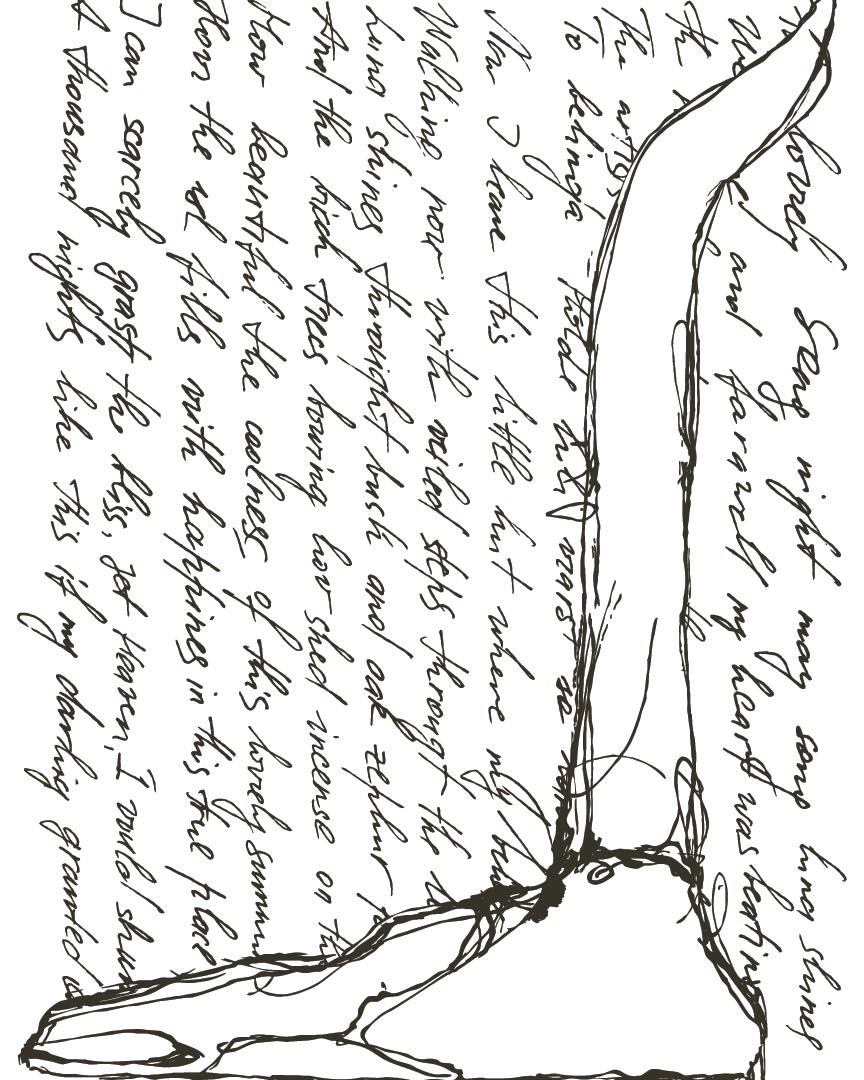 lovely Song night may song luna shines
and farewell my heart was beating
the
The artis
To belinda
Now I leave this little hut where my
Walking now with veiled steps throught the
Luna shines throught bush and oak zephur
And the birch trees bowing low shed incense on th
How beautiful the coolness of this lovely summ
How the sol fills with happines in this true place
I can scarcely grasp the bliss, yet Heaven, I would shun
A thousand nights like this if my darling granted